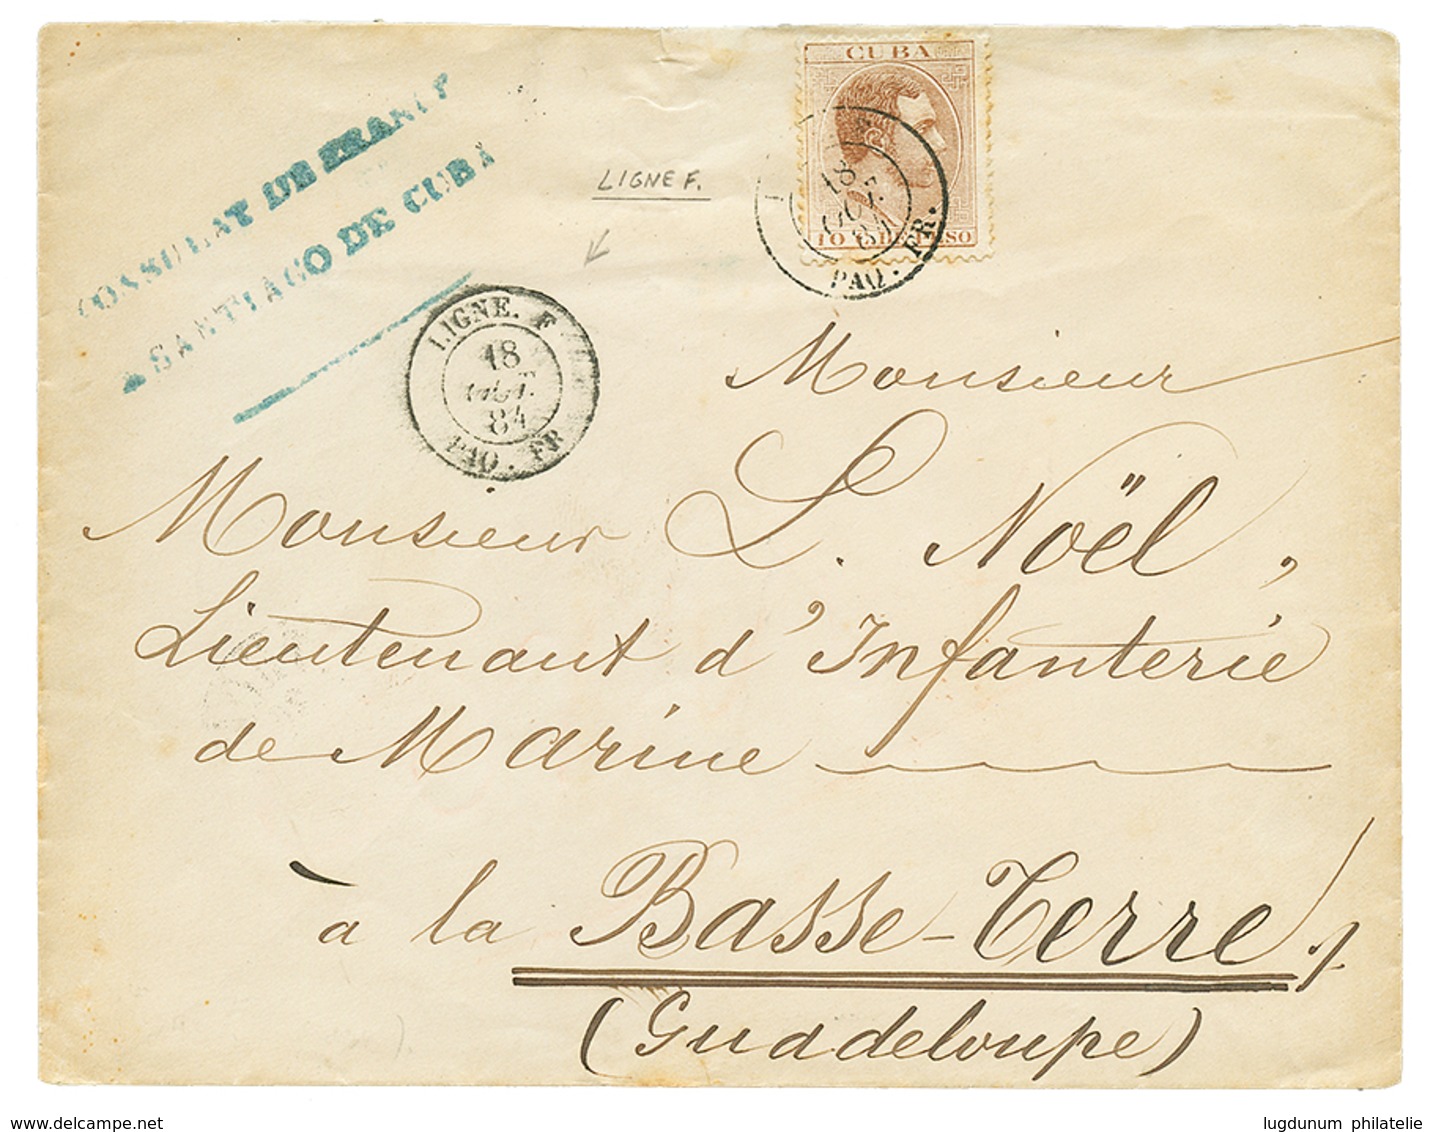 CONSULAT DE FRANCE
A SANTIAGO DE CUBA
LIGNE F.
CUBA
18
AOUT
84
PAQ. FR.
LIGNE. F
18
AOUT
84
PAQ. FR
Monsieur
Monsieur L. Noël,
Lieutenant d'Infanterie
de Marine
à la Basse-Terre
(Guadeloupe)
www.delcampe.net
lugdunum philatelie